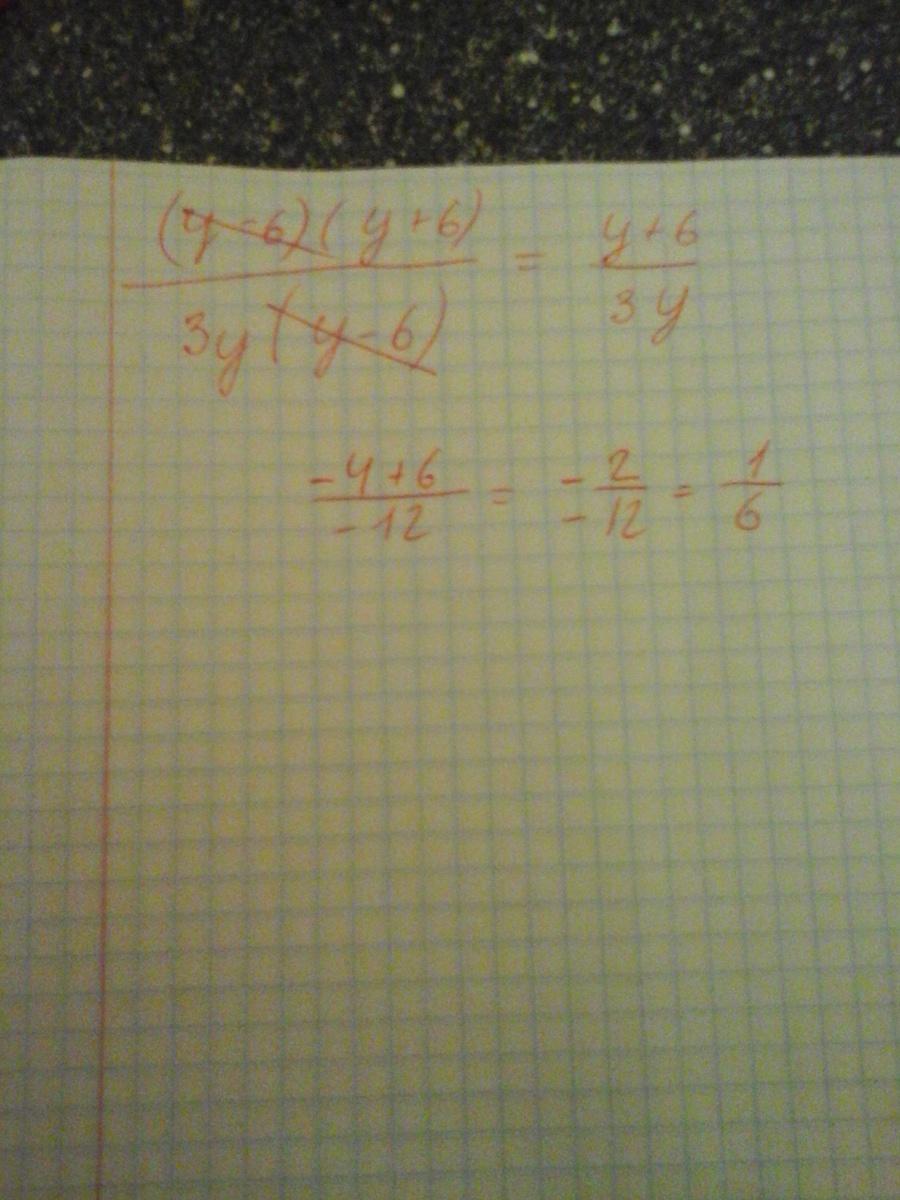 (y-6)(y+6) / 3y(y-6) = y+6 / 3y
-4+6 / -12 = -2 / -12 = 1 / 6